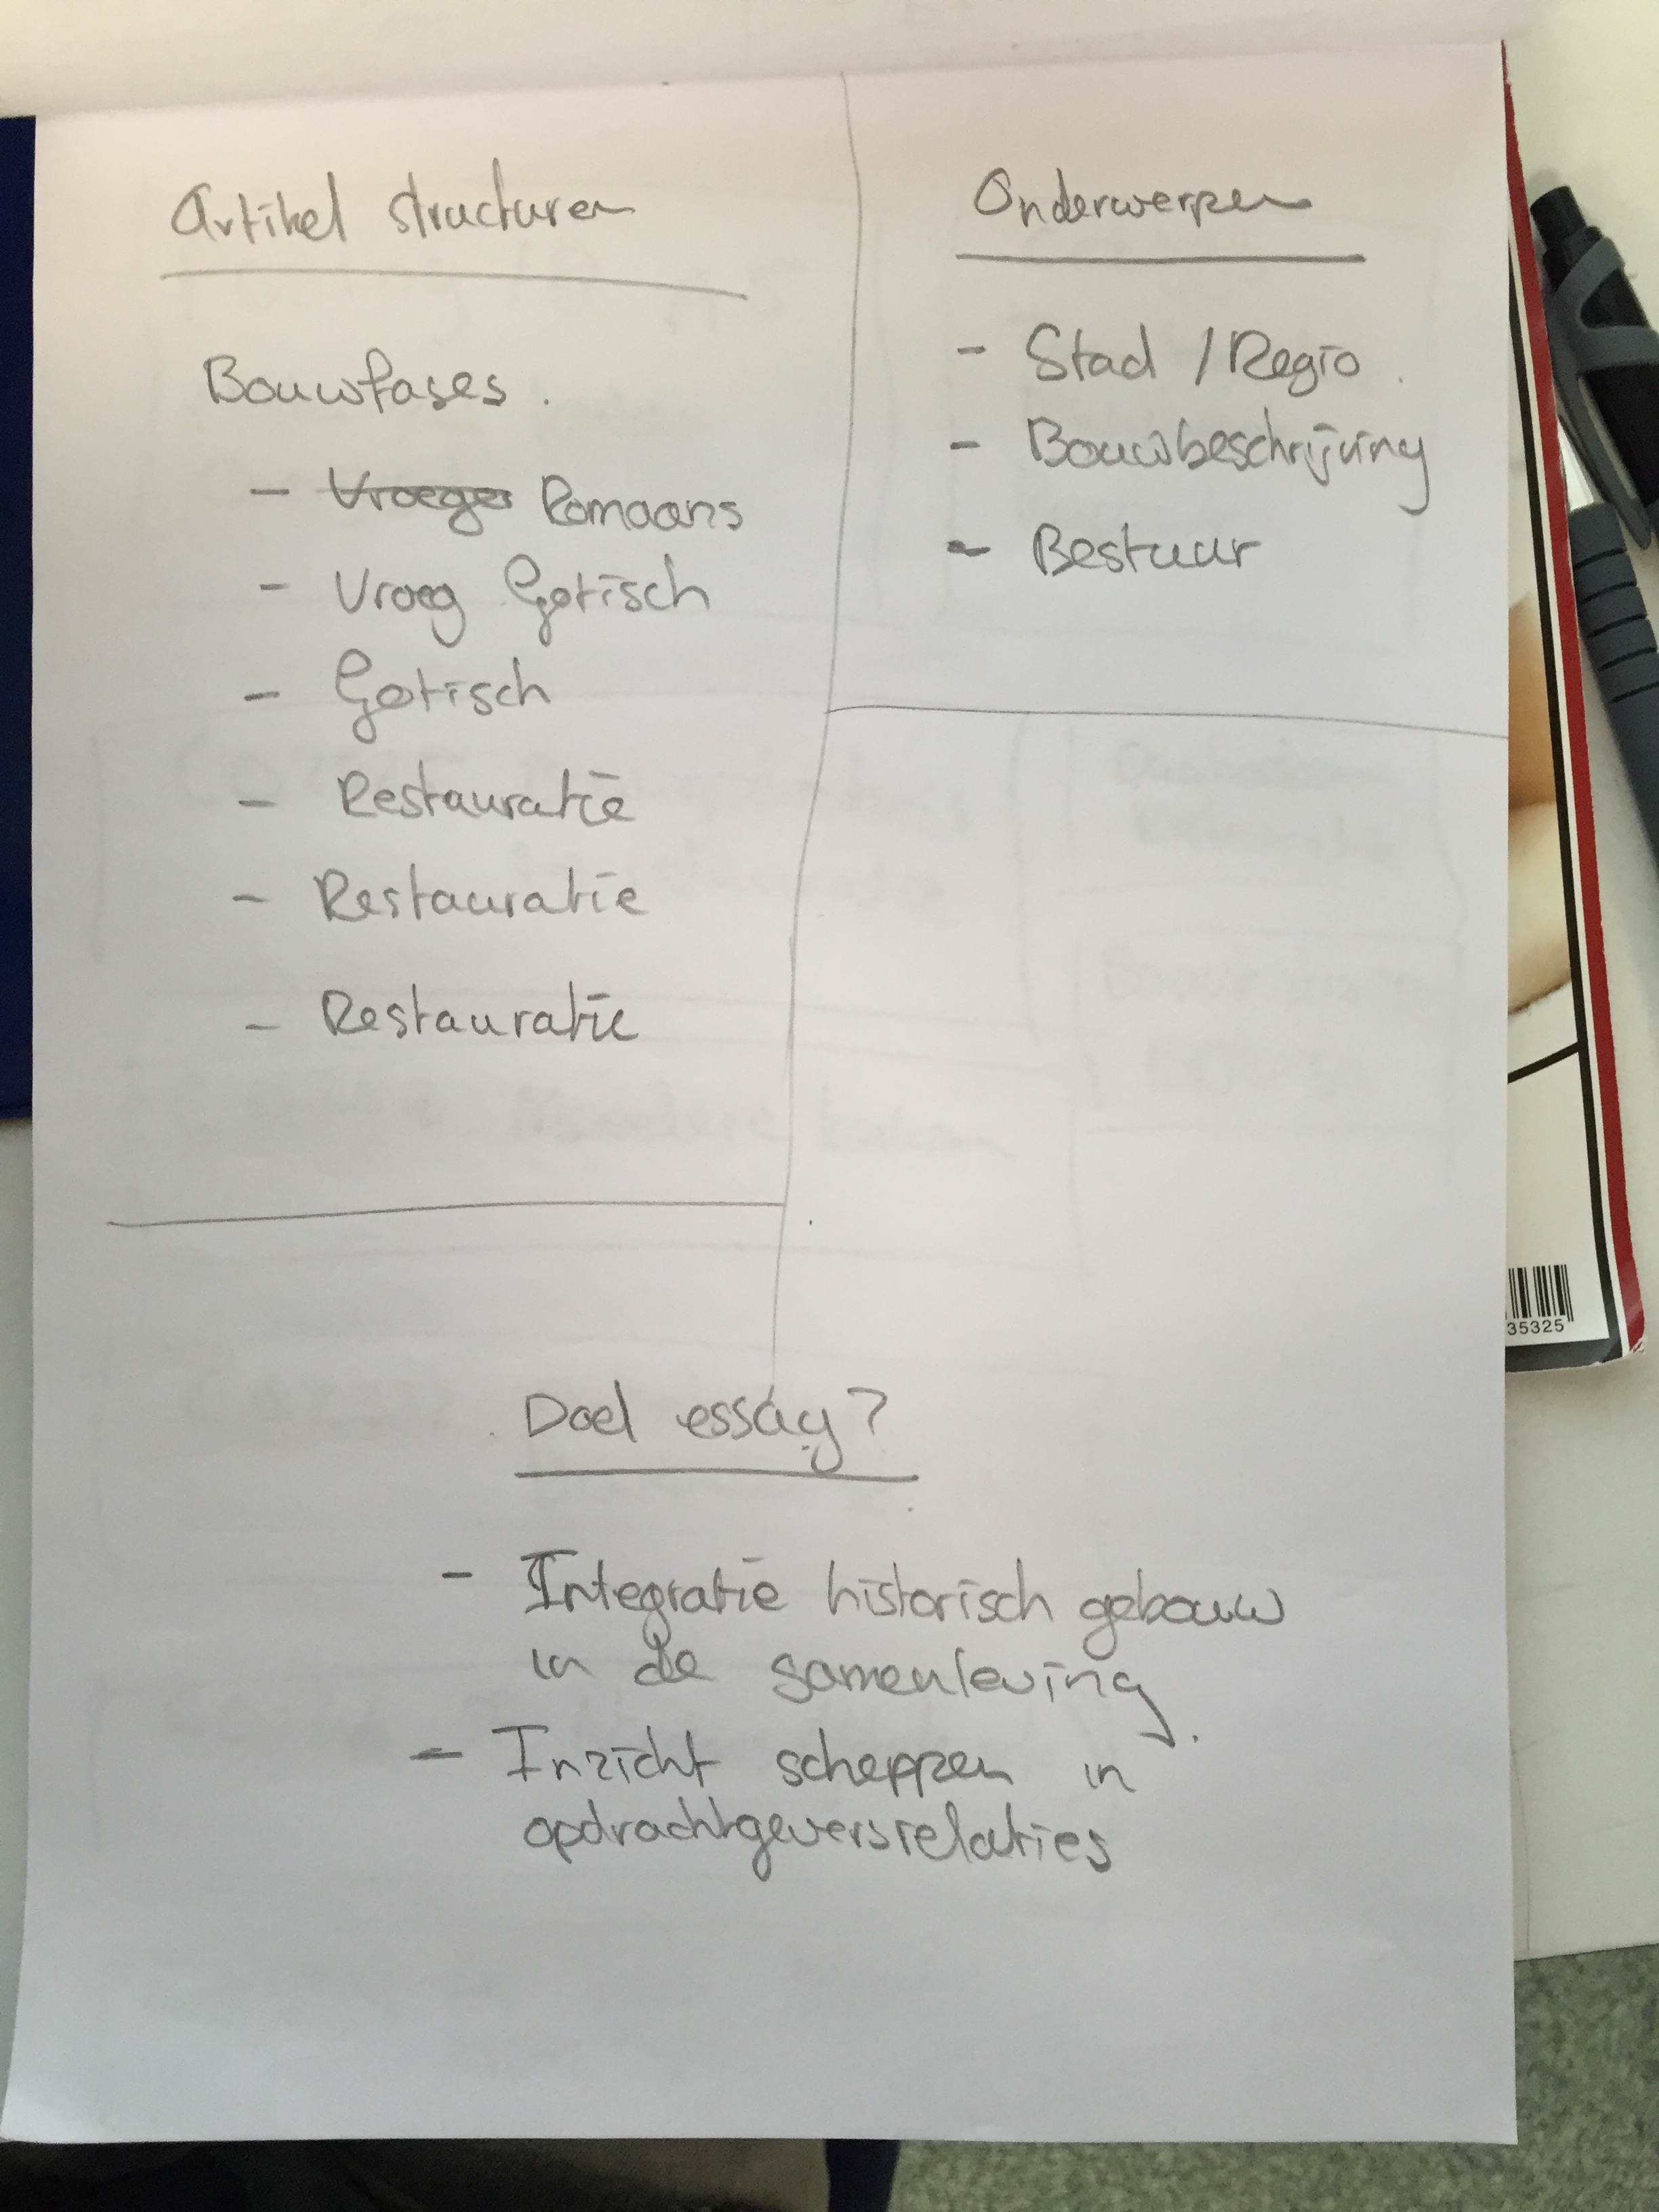 Artikel structuren
Bouwfases.
- Vroeger Romaans
- Vroeg Gotisch
- Gotisch
- Restauratie
- Restauratie
- Restauratie
Onderwerpen
- Stad / Regio.
- Bouwbeschrijving
- Bestuur
Doel essay?
- Integratie historisch gebouw
in de samenleving.
- Inzicht scheppen in
opdrachtgeversrelaties
35325